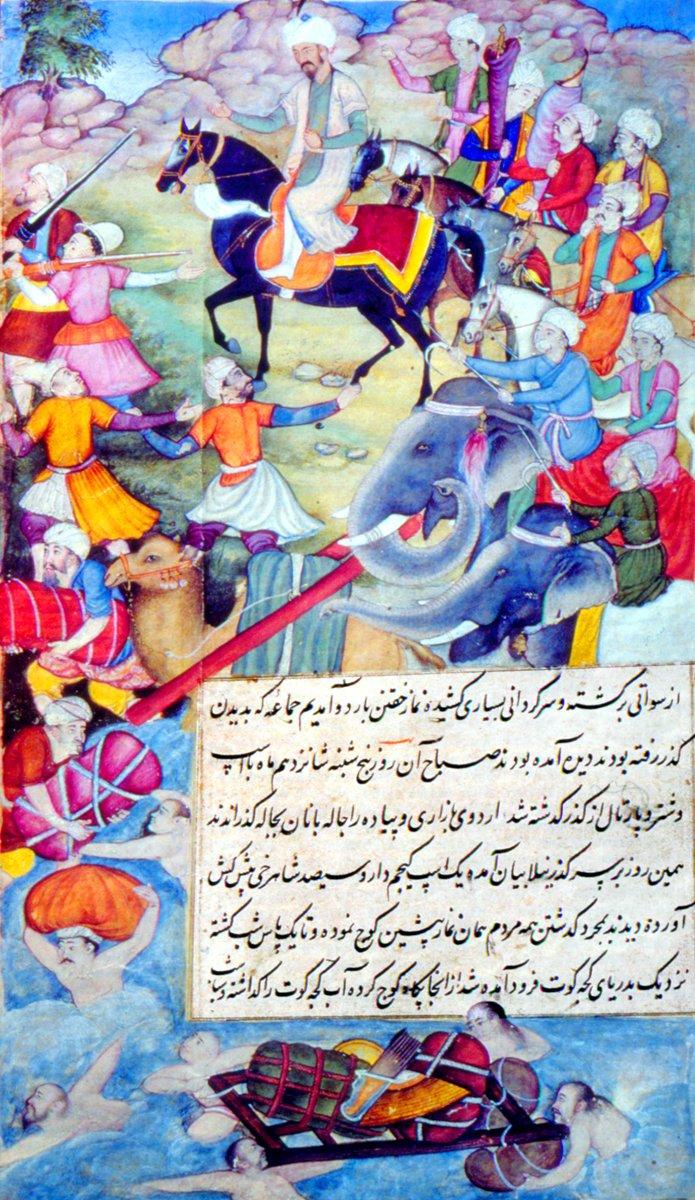 از سواتی برکشته و سرکردانی بسیاری کشیده نماز خفتن باردو آمدیم جماعه که بدیدن
کذر رفته بودند دیده آمده بودند صباح آن روز پنج شبنه شانزدهم ماه با اسپ
وشتر و پارتال از کذر کذشته شد اردوی بازاری و پیاده را جاله بانان بجاله کذراندند
همین روز بر سر کذر نیلابیان آمده یک اسپ کیجم دار و سیصد شاهرخی پیش کش
آورده دیدند بمجرد کذشتن همه مردم همان نماز پیشین کوچ نموده و تا یک پاس شب کشته
نزدیک بدریای کچه کوت فرود آمده شد از انجا پکاه کوچ کرده آب کچه کوت را کذاشته